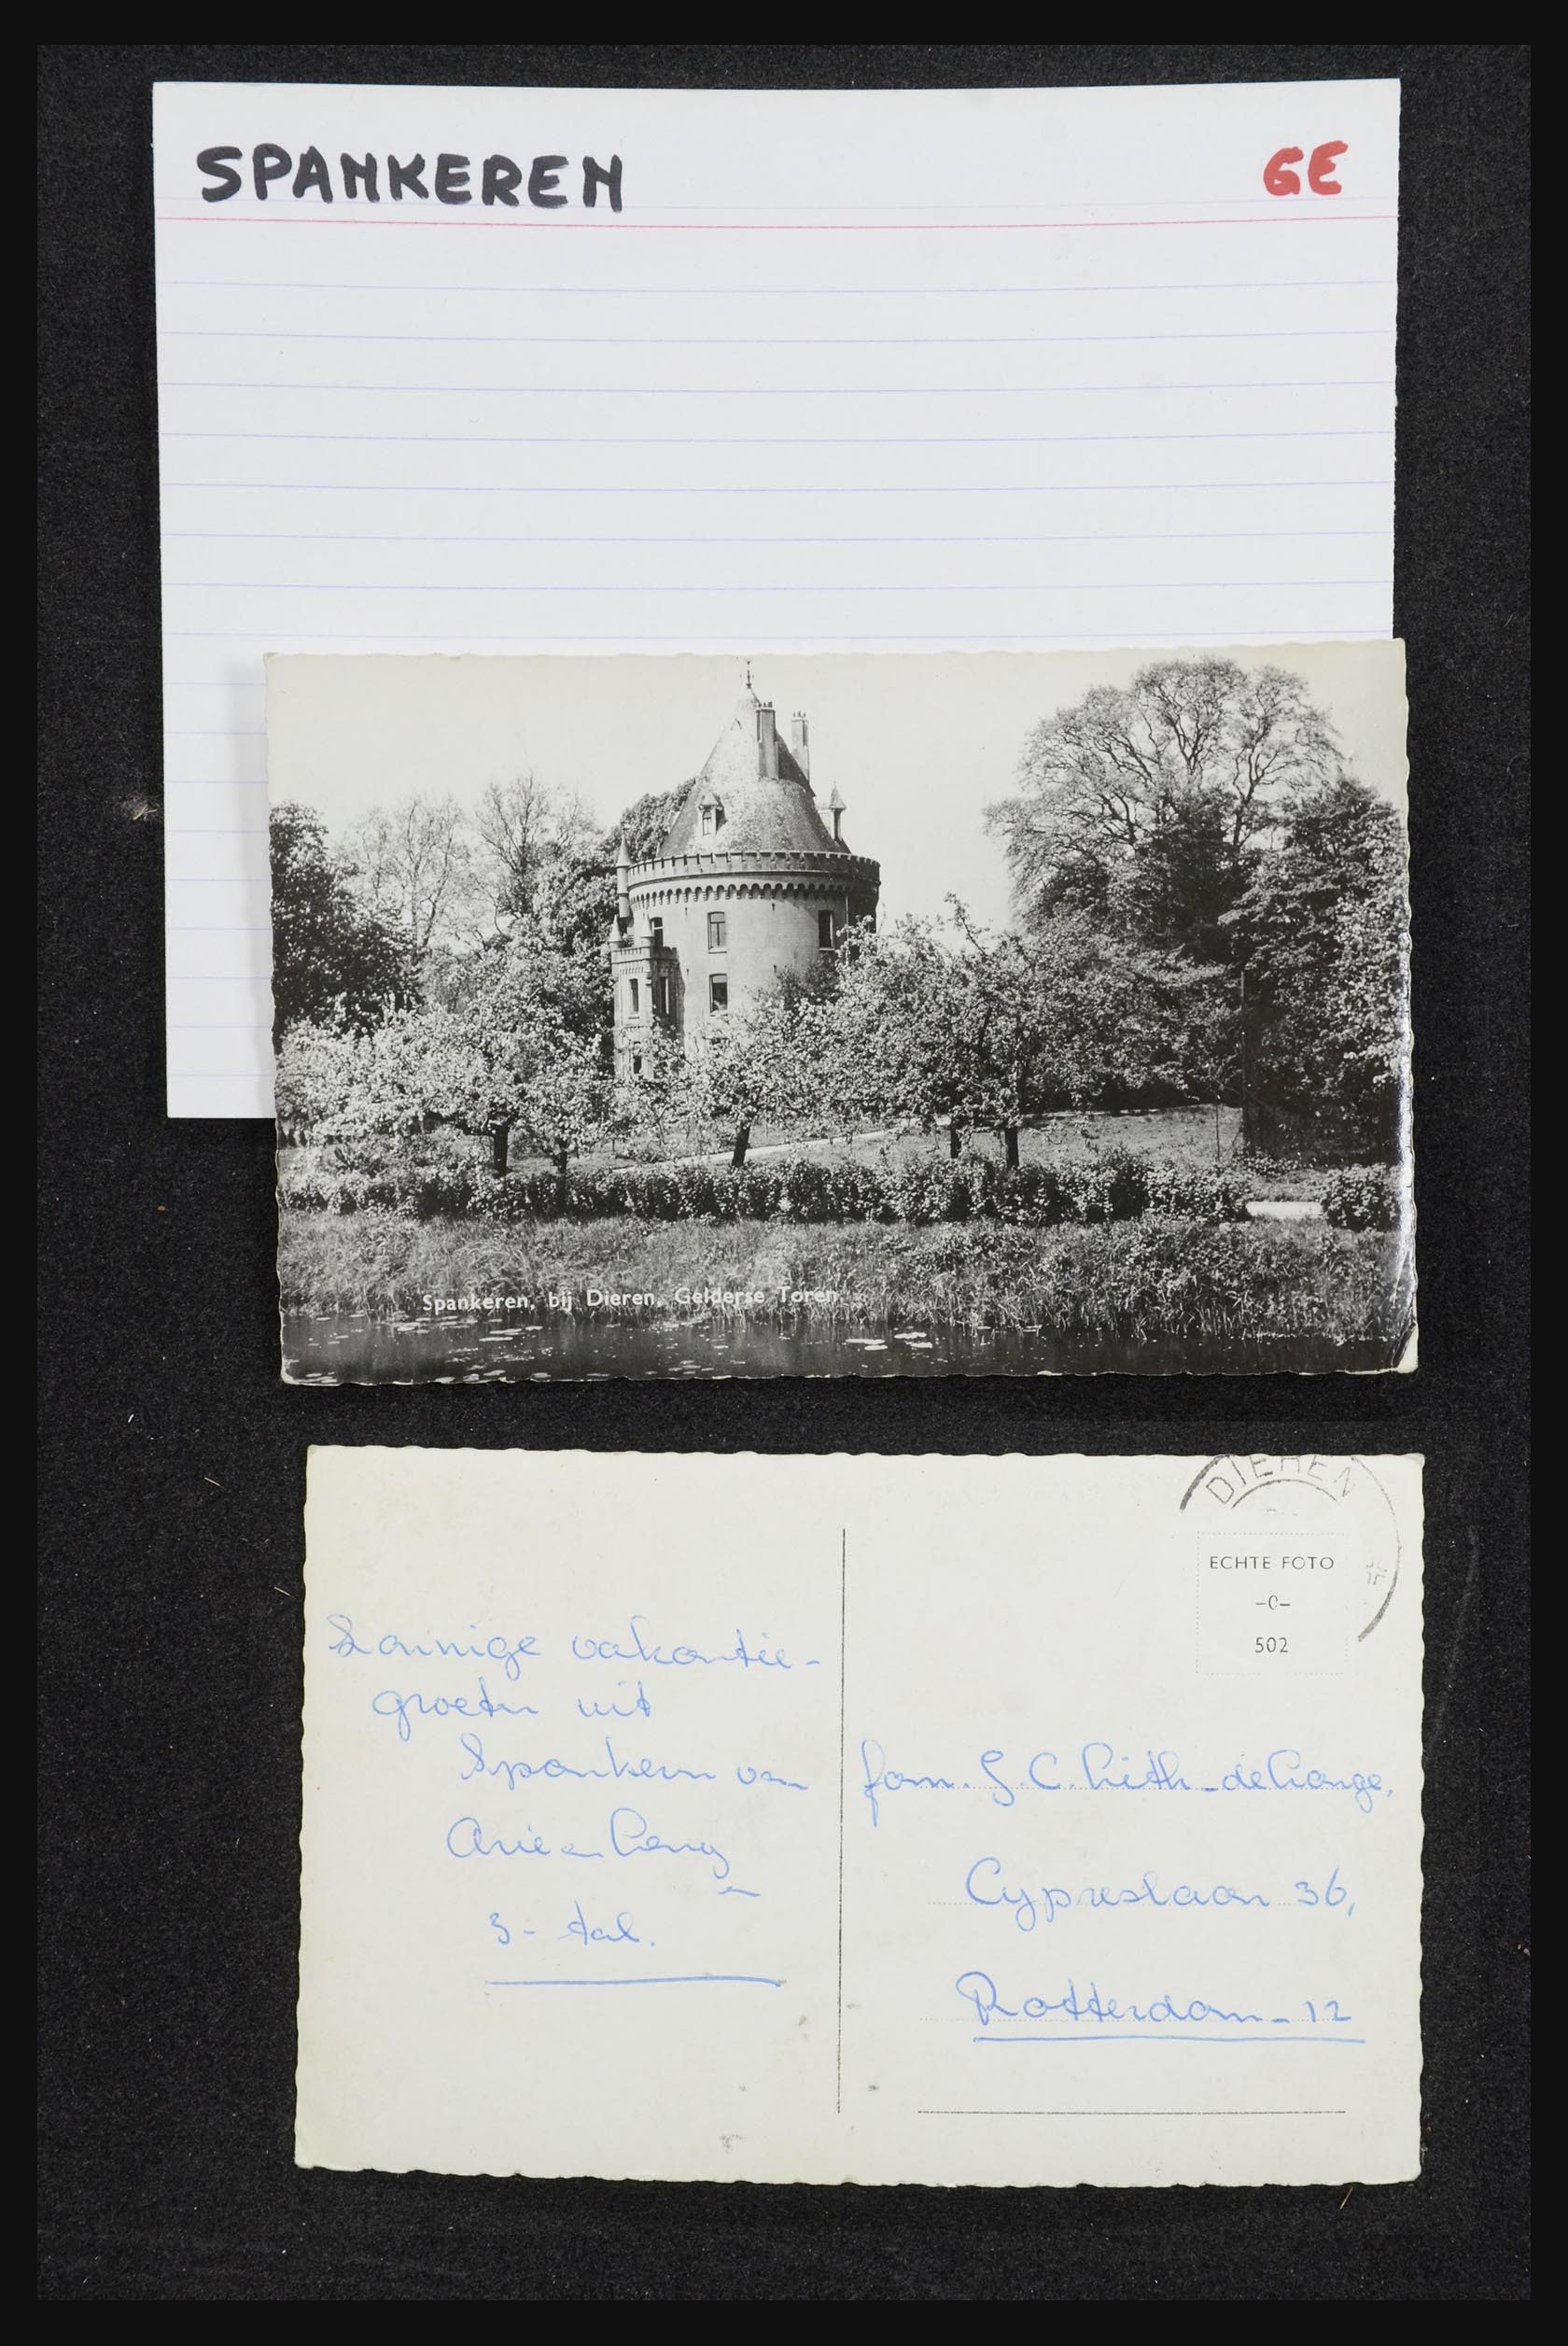 SPANKEREN GE
Spankeren, bij Dieren, Gelderse Toren.
DIEREN
ECHTE FOTO
-0-
502
Zonnige vakantie-
groeten uit
Spankeren van
Arie en
en
3-tal.
fam. C.
Cypreslaan 36,
Rotterdam-12